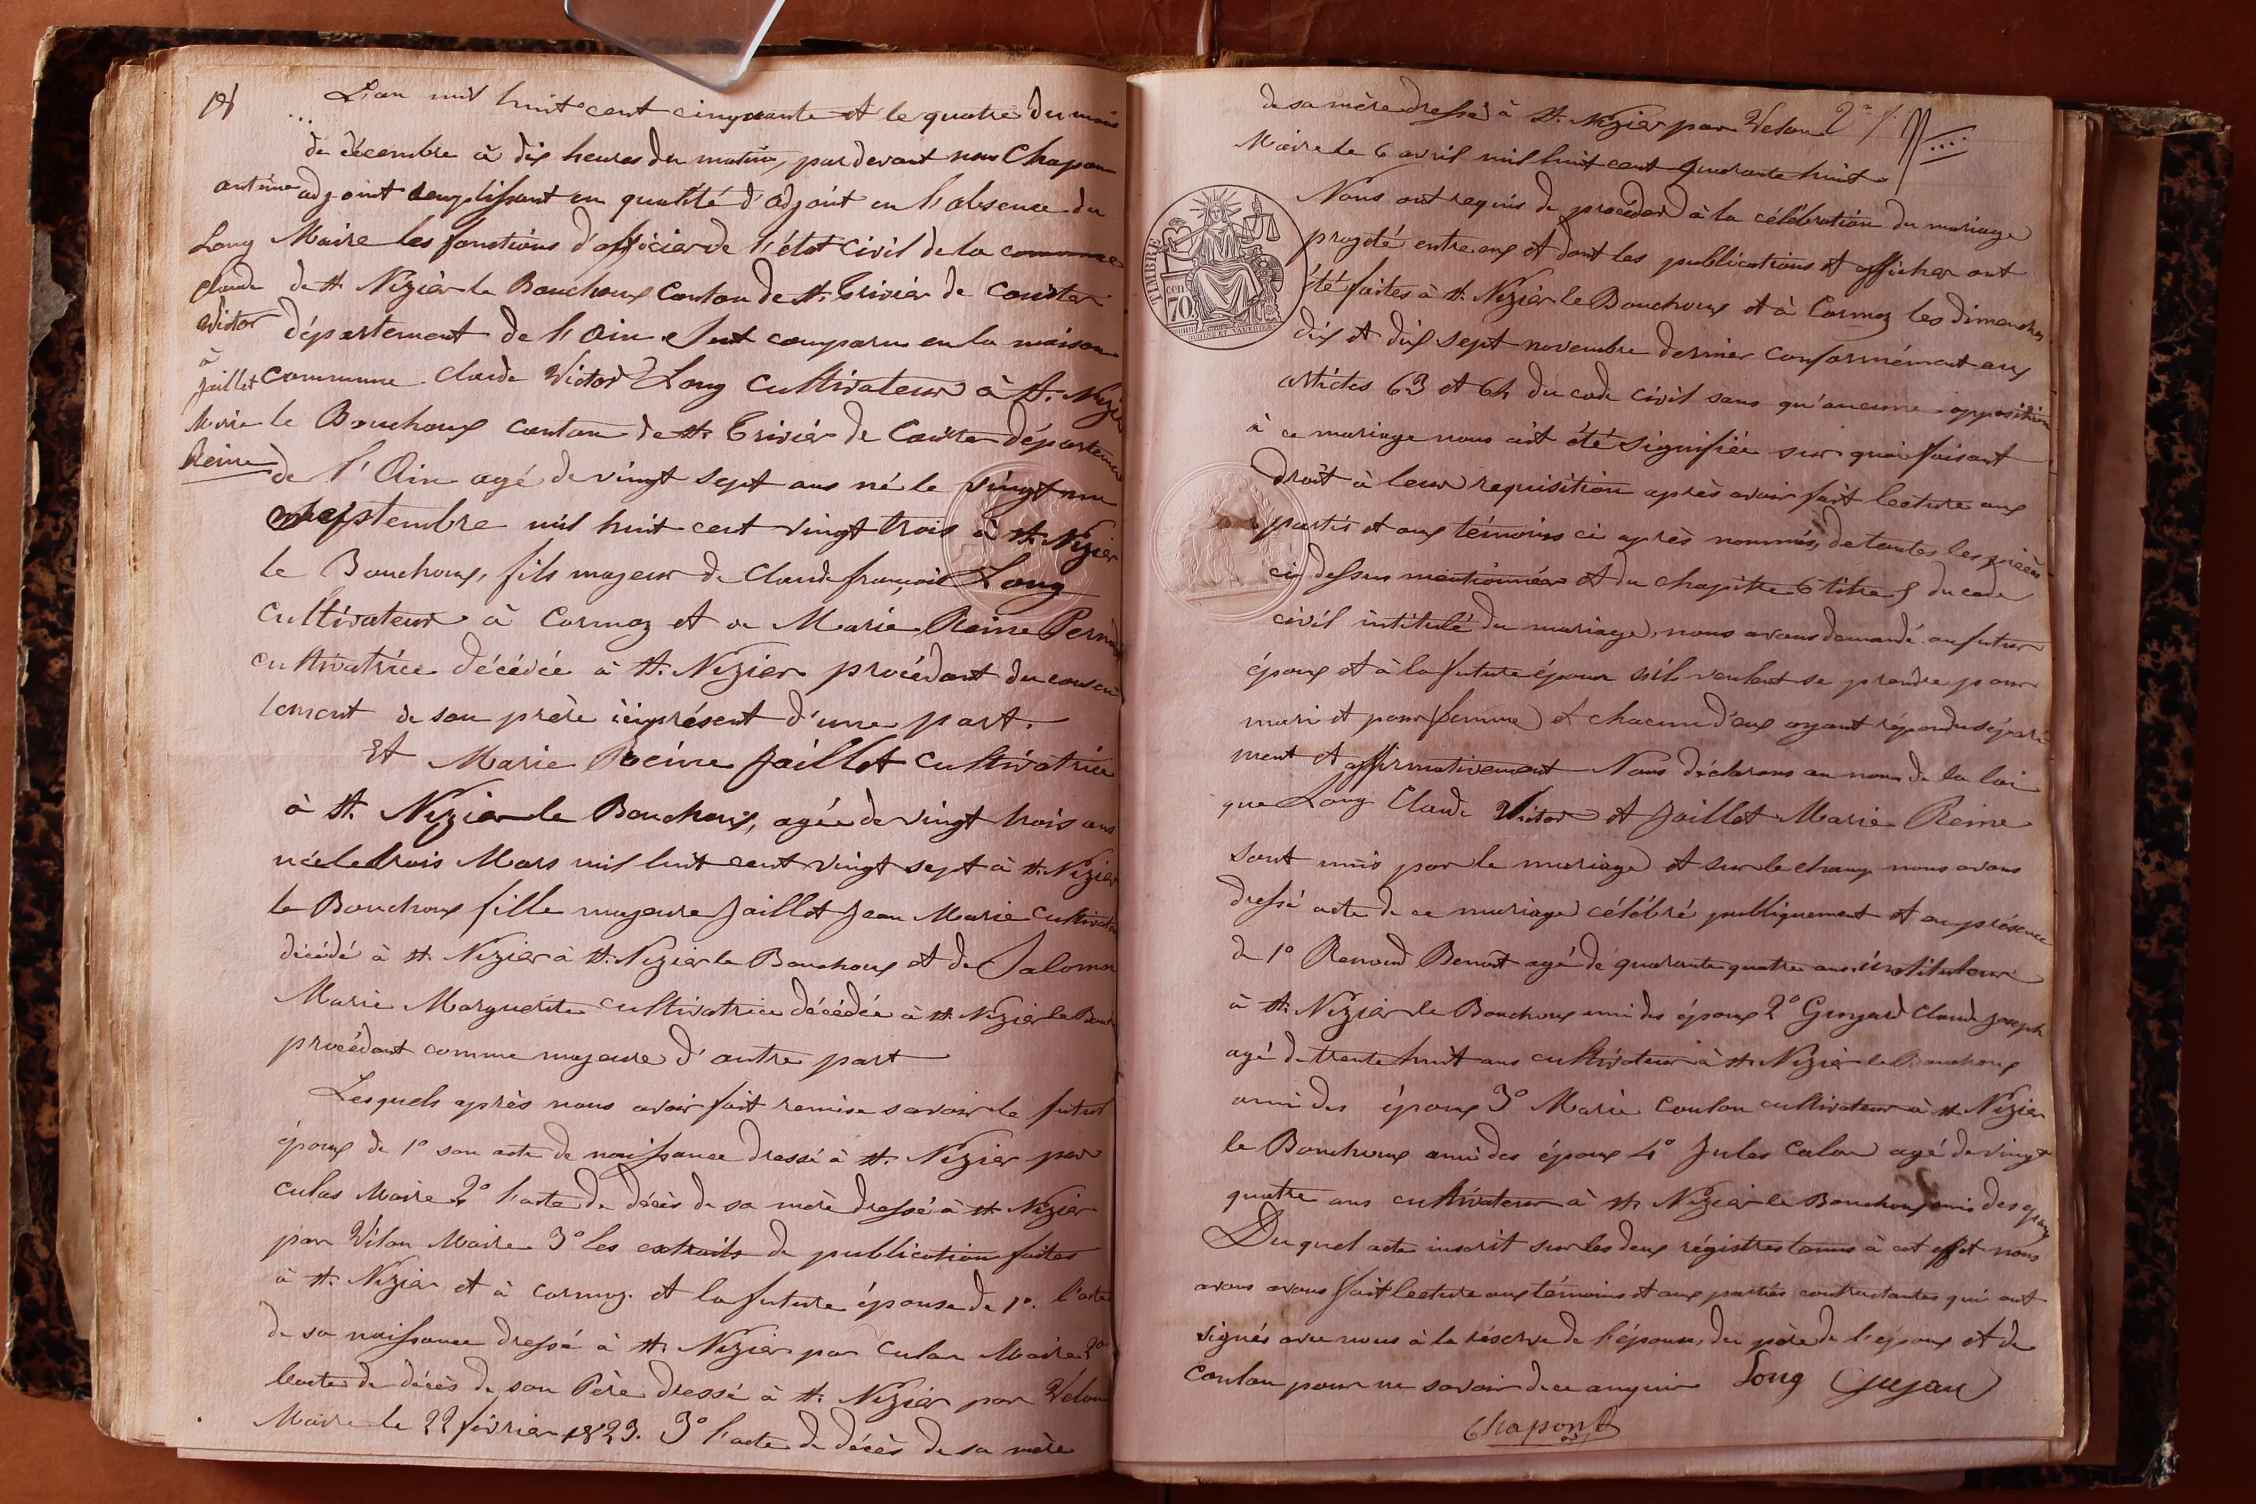 L'an mil huit cent cinquante et le quatre du mois
de décembre à dix heures du matin, par devant nous Chapon
antime adjoint remplissant en qualité d'adjoint en l'absence du
Maire les fonctions d'officier de l'état civil de la commune
de St. Nizier le Bouchoux Canton de St. Trivier de Courtes
département de l'Ain. Sont comparu en la maison
commune Claude Victor Long cultivateur à St. Nizier
le Bouchoux canton de St. Trivier de Courtes département
de l'Ain agé de vingt sept ans né le vingt un
septembre mil huit cent vingt trois à St. Nizier
le Bouchoux, fils majeur de Claude françois Long
cultivateur à Cormoz et de Marie Reine
cultivatrice décédée à St. Nizier procédant du consen
tement de son père ici présent d'une part.
Et Marie Reine Jaillet cultivatrice
à St. Nizier le Bouchoux, agée de vingt trois ans
née le trois Mars mil huit cent vingt sept à St. Nizier
le Bouchoux fille majeure Jaillet Jean Marie cultivateur
décédé à St. Nizier à St. Nizier le Bouchoux et de Salomon
Marie Marguerite cultivatrice décédée à St. Nizier le Bouch
procédant comme majeure d'autre part
Lesquels après nous avoir fait remise savoir le futur
époux de 1° son acte de naissance dressé à St. Nizier par
culas Maire 2° l'acte de décès de sa mère dressé à St. Nizier
par Velon Maire 3° les extraits de publication faites
à St. Nizier et à Cormoz. et la future épouse de 1°. l'acte
de sa naissance dressé à St. Nizier par culas Maire 2°
l'acte de décès de son Père dressé à St. Nizier par Velon
Maire le 22 février 1823. 3° l'acte de décès de sa mère
Long
Claude
Victor
à
Jaillet
Marie
Reine
de sa mère dressé à St. Nizier par Velon
Maire le 6 avril mil huit cent quarante huit.
Nous ont requis de procéder à la célébration du mariage
projeté entre eux et dont les publications et affiches ont
été faites à St. Nizier le Bouchoux et à Cormoz les dimanches
dix et dix sept novembre dernier conformément aux
articles 63 et 64 du code civil sans qu'aucune opposition
à ce mariage nous ait été signifiée sur quoi faisant
droit à leur requisition après avoir fait lecture aux
partis et aux témoins ci après nommés, de toutes les pièces
ci dessus mentionnées et du chapitre 6 titre 5 du code
civil intitulé du mariage, nous avons demandé au futur
époux et à la future épouse s'ils veulent se prendre pour
mari et pour femme et chacun d'eux ayant répondu séparé
ment et affirmativement Nous déclarons au nom de la loi
que Long Claude Victor et Jaillet Marie Reine
sont unis par le mariage et sur le champ nous avons
dressé acte de ce mariage célébré publiquement et en présence
de 1° Renoud Benoît agé de quarante quatre ans instituteur
à St. Nizier le Bouchoux ami des époux 2° Claude Joseph
agé de trente huit ans cultivateur à St. Nizier le Bouchoux
ami des époux 3° Marie Coulon cultivateur à St. Nizier
le Bouchoux ami des époux 4° Jules agé de vingt
quatre ans cultivateur à St. Nizier le Bouchoux ami des époux
Du quel acte inscrit sur les deux régistres tenus à cet effet nous
avons avons fait lecture aux témoins et aux parties contractantes qui ont
signés avec nous à la réserve de l'épouse, du père de l'époux et de
Coulon pour ne savoir de ce enquis Long
Chapon
TIMBRE
70